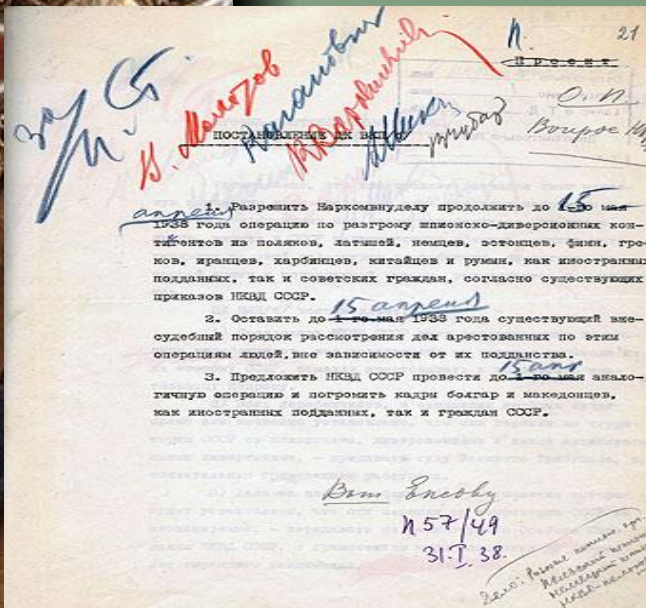 П.
21
Проект
О.П.
за И. Ст.
В. Молотов
Каганович
К Ворошилов
А Микоян
Чубарь
Вопрос НКВД
ПОСТАНОВЛЕНИЕ ЦК ВКП/б/
1. Разрешить Наркомвнуделу продолжить до 1-го мая 15
апреля
1938 года операцию по разгрому шпионско-диверсионных кон-
тингентов из поляков, латышей, немцев, эстонцев, финн, гре-
ков, иранцев, харбинцев, китайцев и румын, как иностранных
подданных, так и советских граждан, согласно существующих
приказов НКВД СССР.
15 апреля
2. Оставить до 1-го мая 1938 года существующий вне-
судебный порядок рассмотрения дел арестованных по этим
операциям людей, вне зависимости от их подданства.
15 апр
3. Предложить НКВД СССР провести до 1-го мая анало-
гичную операцию и погромить кадры болгар и македонцев,
как иностранных подданных, так и граждан СССР.
Вып Ежову
П 57/49
31.I.38.